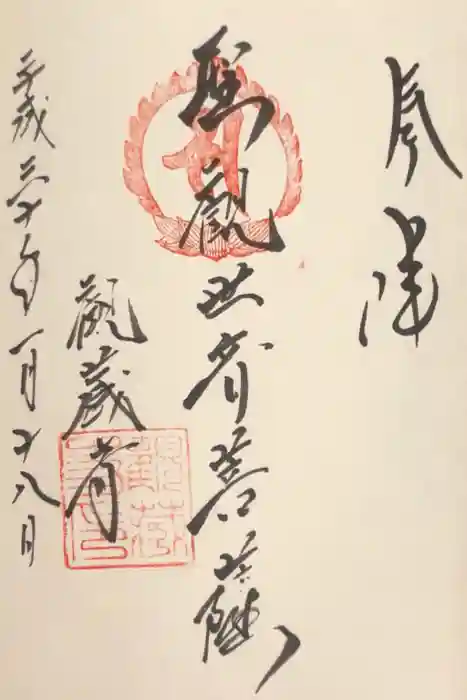 奉拝
聖観世音菩薩
観蔵院
平成三十年一月二十八日